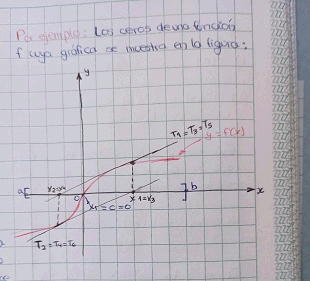 Por ejemplo: Los ceros de una función
f cuya gráfica se muestra en la figura:
y
T1=T3=T5
y=f(x)
x2=x4
a[
]b
x
0
x1=x3
x5=c=0
T2=T4=T6